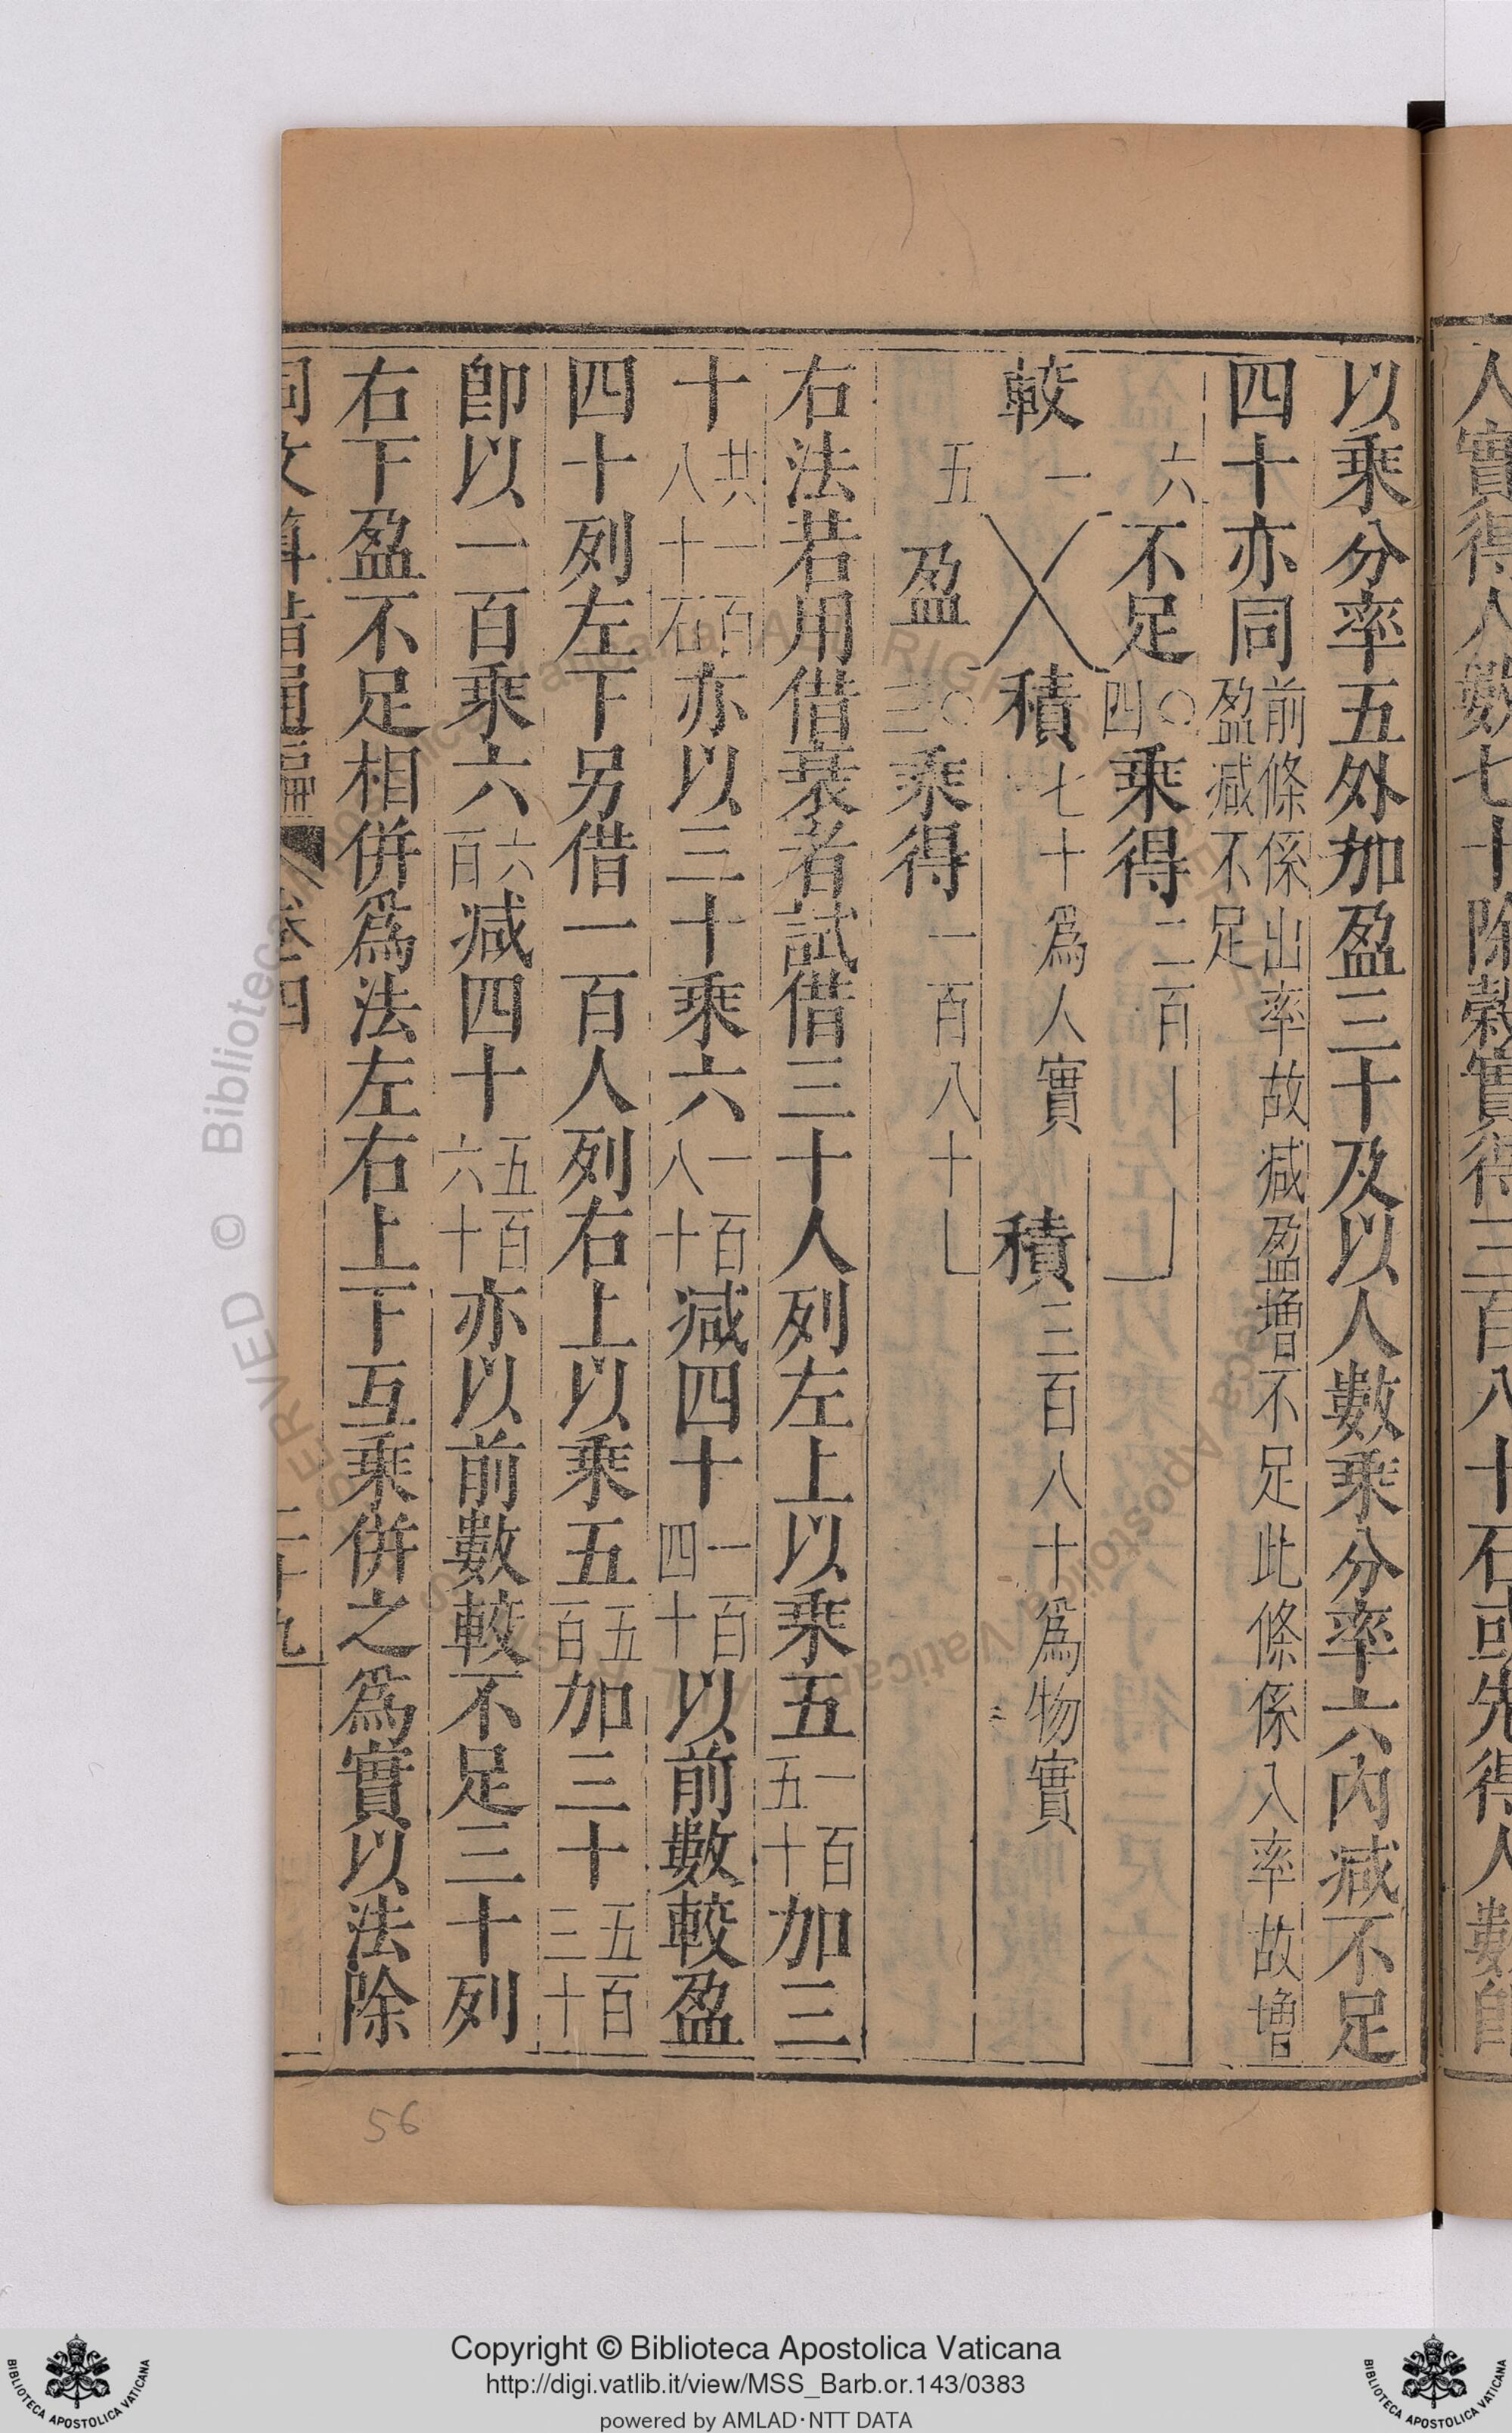 人實得人數七十除穀實得三百八十石或先得人數
以乘分率五外加盈三十及以人數乘分率六內减不足
四十亦同前條係出率故减盈增不足此條係入率故增盈减不足
六不足四〇乘得二百一
較一積七十爲人實積三百八十爲物實
五盈三〇乘得一百八十
右法若用借衰者試借三十人列左上以乘五一百五十加三
十共一百八十石亦以三十乘六一百八十减四十一百四十以前數較盈
四十列左下另借一百人列右上以乘五五百加三十五百三十
卽以一百乘六六百减四十五百六十亦以前數較不足三十列
右下盈不足相併爲法左右上下互乘併之爲實以法除
同文算指通編 卷四 二十九
56
Copyright © Biblioteca Apostolica Vaticana
http://digi.vatlib.it/view/MSS_Barb.or.143/0383
powered by AMLAD·NTT DATA
BIBLIOTECA APOSTOLICA VATICANA
BIBLIOTECA APOSTOLICA VATICANA